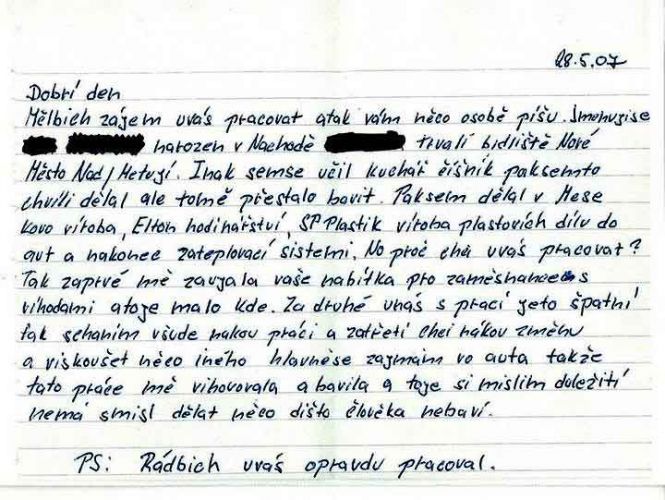 28.5.07
Dobrí den
Mělbich zájem uvás pracovat atak vám něco osobě píšu. Jmenujise
narozen v Nachodě trvalí bidliště Nové
Město Nad/Metují. Inak semse učil kuchář číšník paksemto
chvíli dělal ale tomě přestalo bavit. Paksem dělal v Mese
kovo víroba, Elton hodinářství, SP Plastik víroba plastovích dílu do
aut a nakonec zateplovací sistemi. No proč chci uvás pracovat?
Tak zaprvé mě zaujala vaše nabítka pro zaměsnance s
vihodami atoje malo kde. Za druhé unás s prací jeto špatní
tak schaním všude nakou práci a zatřetí chci nákou změnu
a viskoušet něco iného hlavněse zajmám vo auta takže
tato práce mě vihovovala a bavila a toje si mislim duležití
nemá smisl dělat něco dišto člověka nebaví.
PS: Rádbich uvás opravdu pracoval.